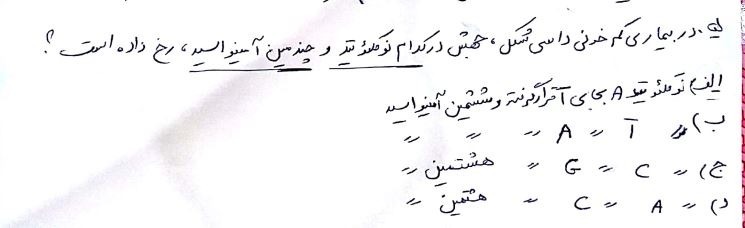 در بیماری کم خونی داسی شکل، جهش در کدام نوکلئوتید و چندمین آمینواسید، رخ داده است؟
الف) نوکلئوتید A بجای T قرار گرفته و ششمین آمینواسید
ب) " T " A " " "
ج) " C " G " هشتمین "
د) " A " C " هشتمین "